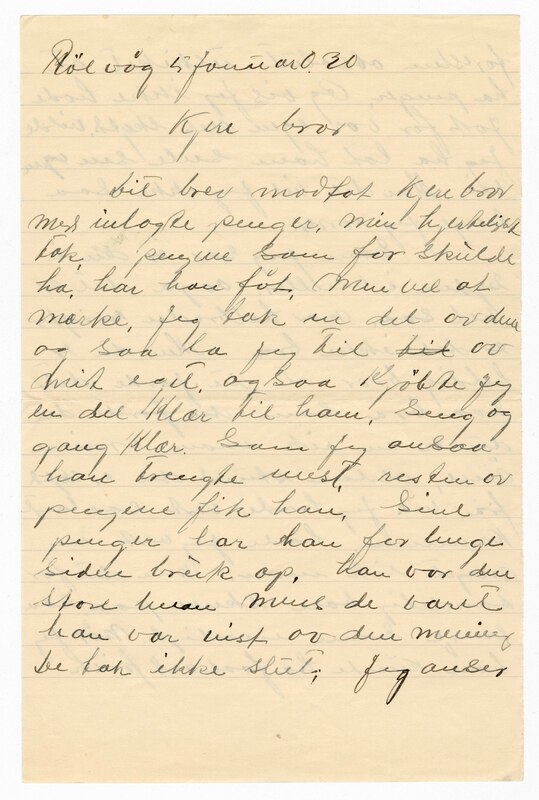 Rölvåg 5 Januar 30
Kjere bror
Dit brev modtat Kjere bror
med inlagte penger, min hjerteligst
tak, pengene som far skulde
ha, har han fåt, Men vel at
mærke, Jeg tok en del av dem
og saa la jeg til av
mit eget, ogsaa Kjöbte jeg
en del Klær til ham, Seng og
gang Klær. Som jeg ansaa
han trengte mest, resten av
pengene fik han, Sine
penger har han for lenge
siden brukt op, han var den
store mann mens de varte
han var vist av den mening
De tok ikke slut, Jeg anser